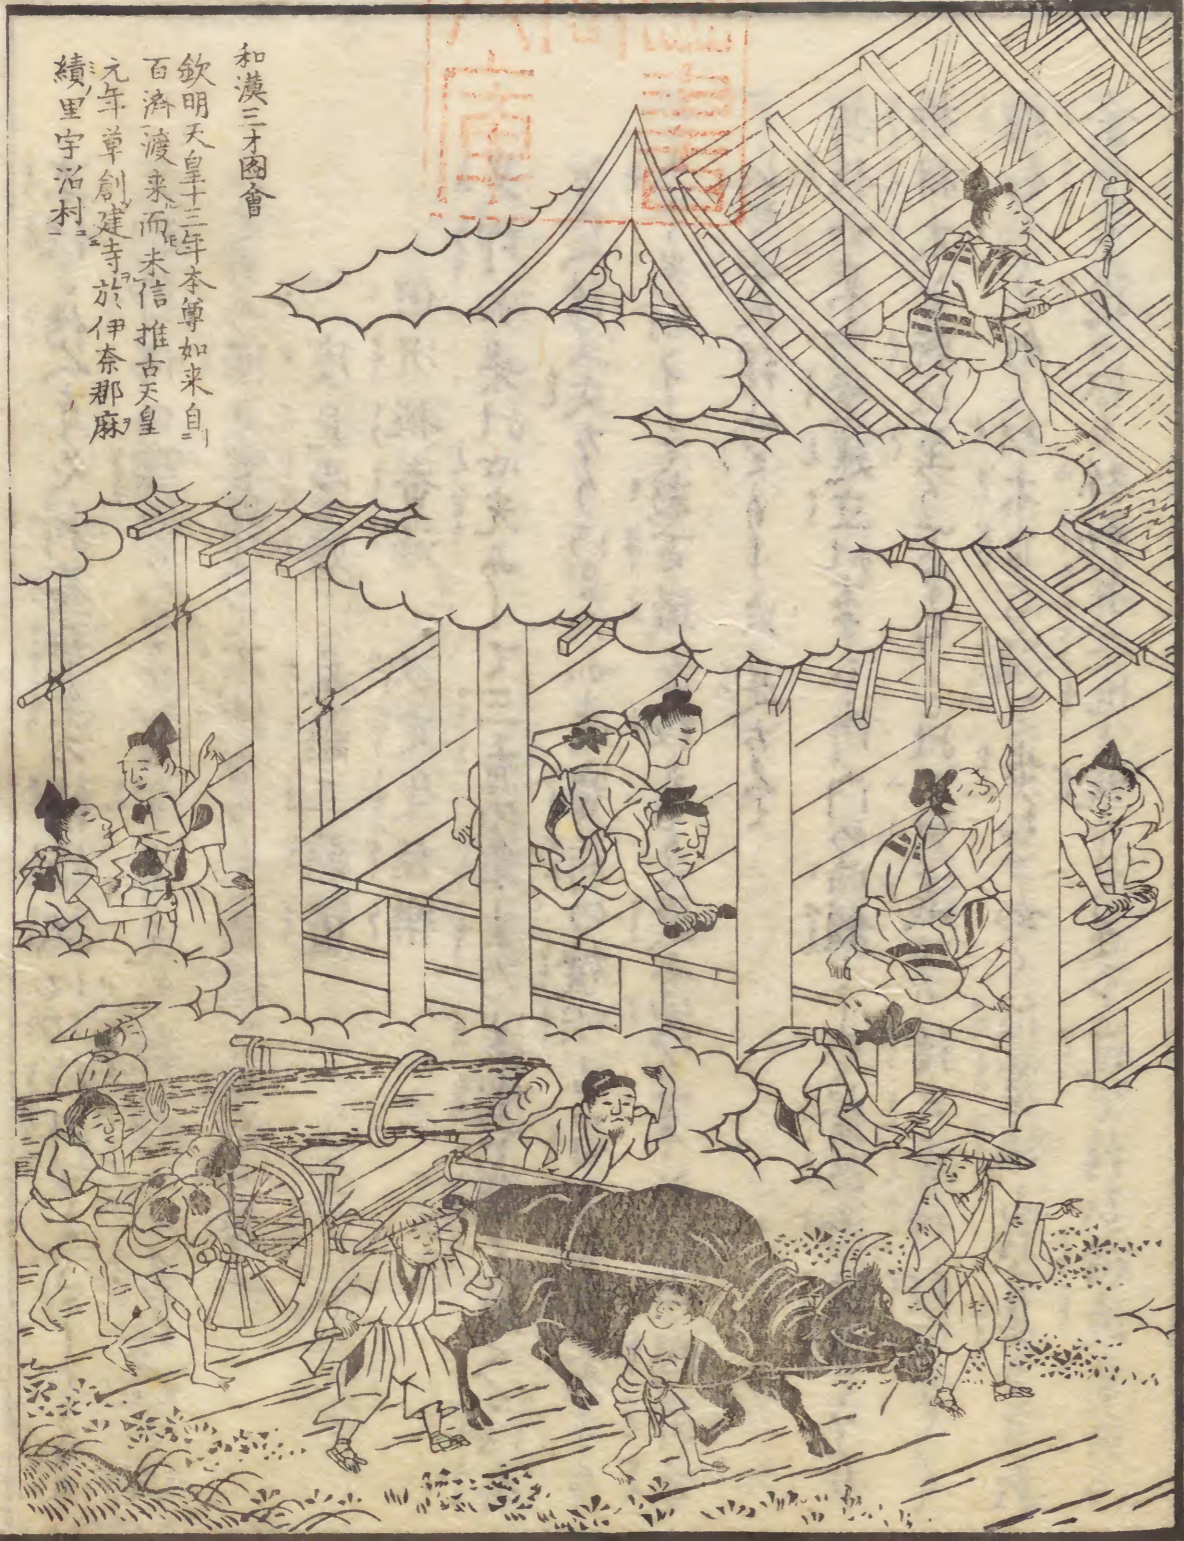 和漢三才圖會
欽明天皇十三年本尊如来自
百濟渡来而未信推古天皇
元年草創建寺於伊奈郡麻
績里宇沼村